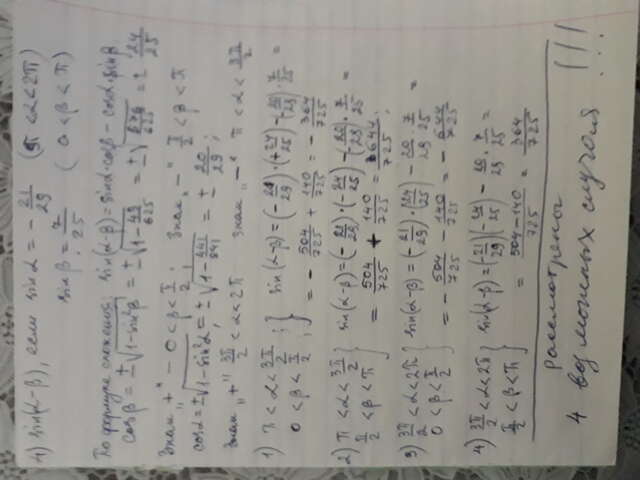 4) sin(α-β), если sin α = - 21/29 (π < α < 2π)
sin β = 7/25 (0 < β < π)
По формуле сложения: sin(α-β) = sinα·cosβ - cosα·sinβ.
cosβ = ±√(1-sin²β) = ±√(1-49/625) = ±√(576/625) = ± 24/25
Знак „+" - 0 < β < π/2 ; Знак „-" π/2 < β < π
cosα = ±√(1-sin²α) = ±√(1-441/841) = ± 20/29 ;
Знак „+" 3π/2 < α < 2π знак „-" π < α < 3π/2
1) π < α < 3π/2 ; sin(α-β) = (-21/29)·(+24/25) - (-20/29)·7/25 =
0 < β < π/2 ; = - 504/725 + 140/725 = - 364/725
2) π < α < 3π/2 sin(α-β) = (-21/29)·(-24/25) - (-20/29)·7/25 =
π/2 < β < π = 504/725 + 140/725 = 644/725 ;
3) 3π/2 < α < 2π sin(α-β) = (-21/29)·(24/25) - 20/29·7/25 =
0 < β < π/2 = - 504/725 - 140/725 = - 644/725
4) 3π/2 < α < 2π sin(α-β) = (-21/29)(-24/25) - 20/29·7/25 =
π/2 < β < π = 504-140/725 = 364/725
рассмотрены
4 возможных случая !!!